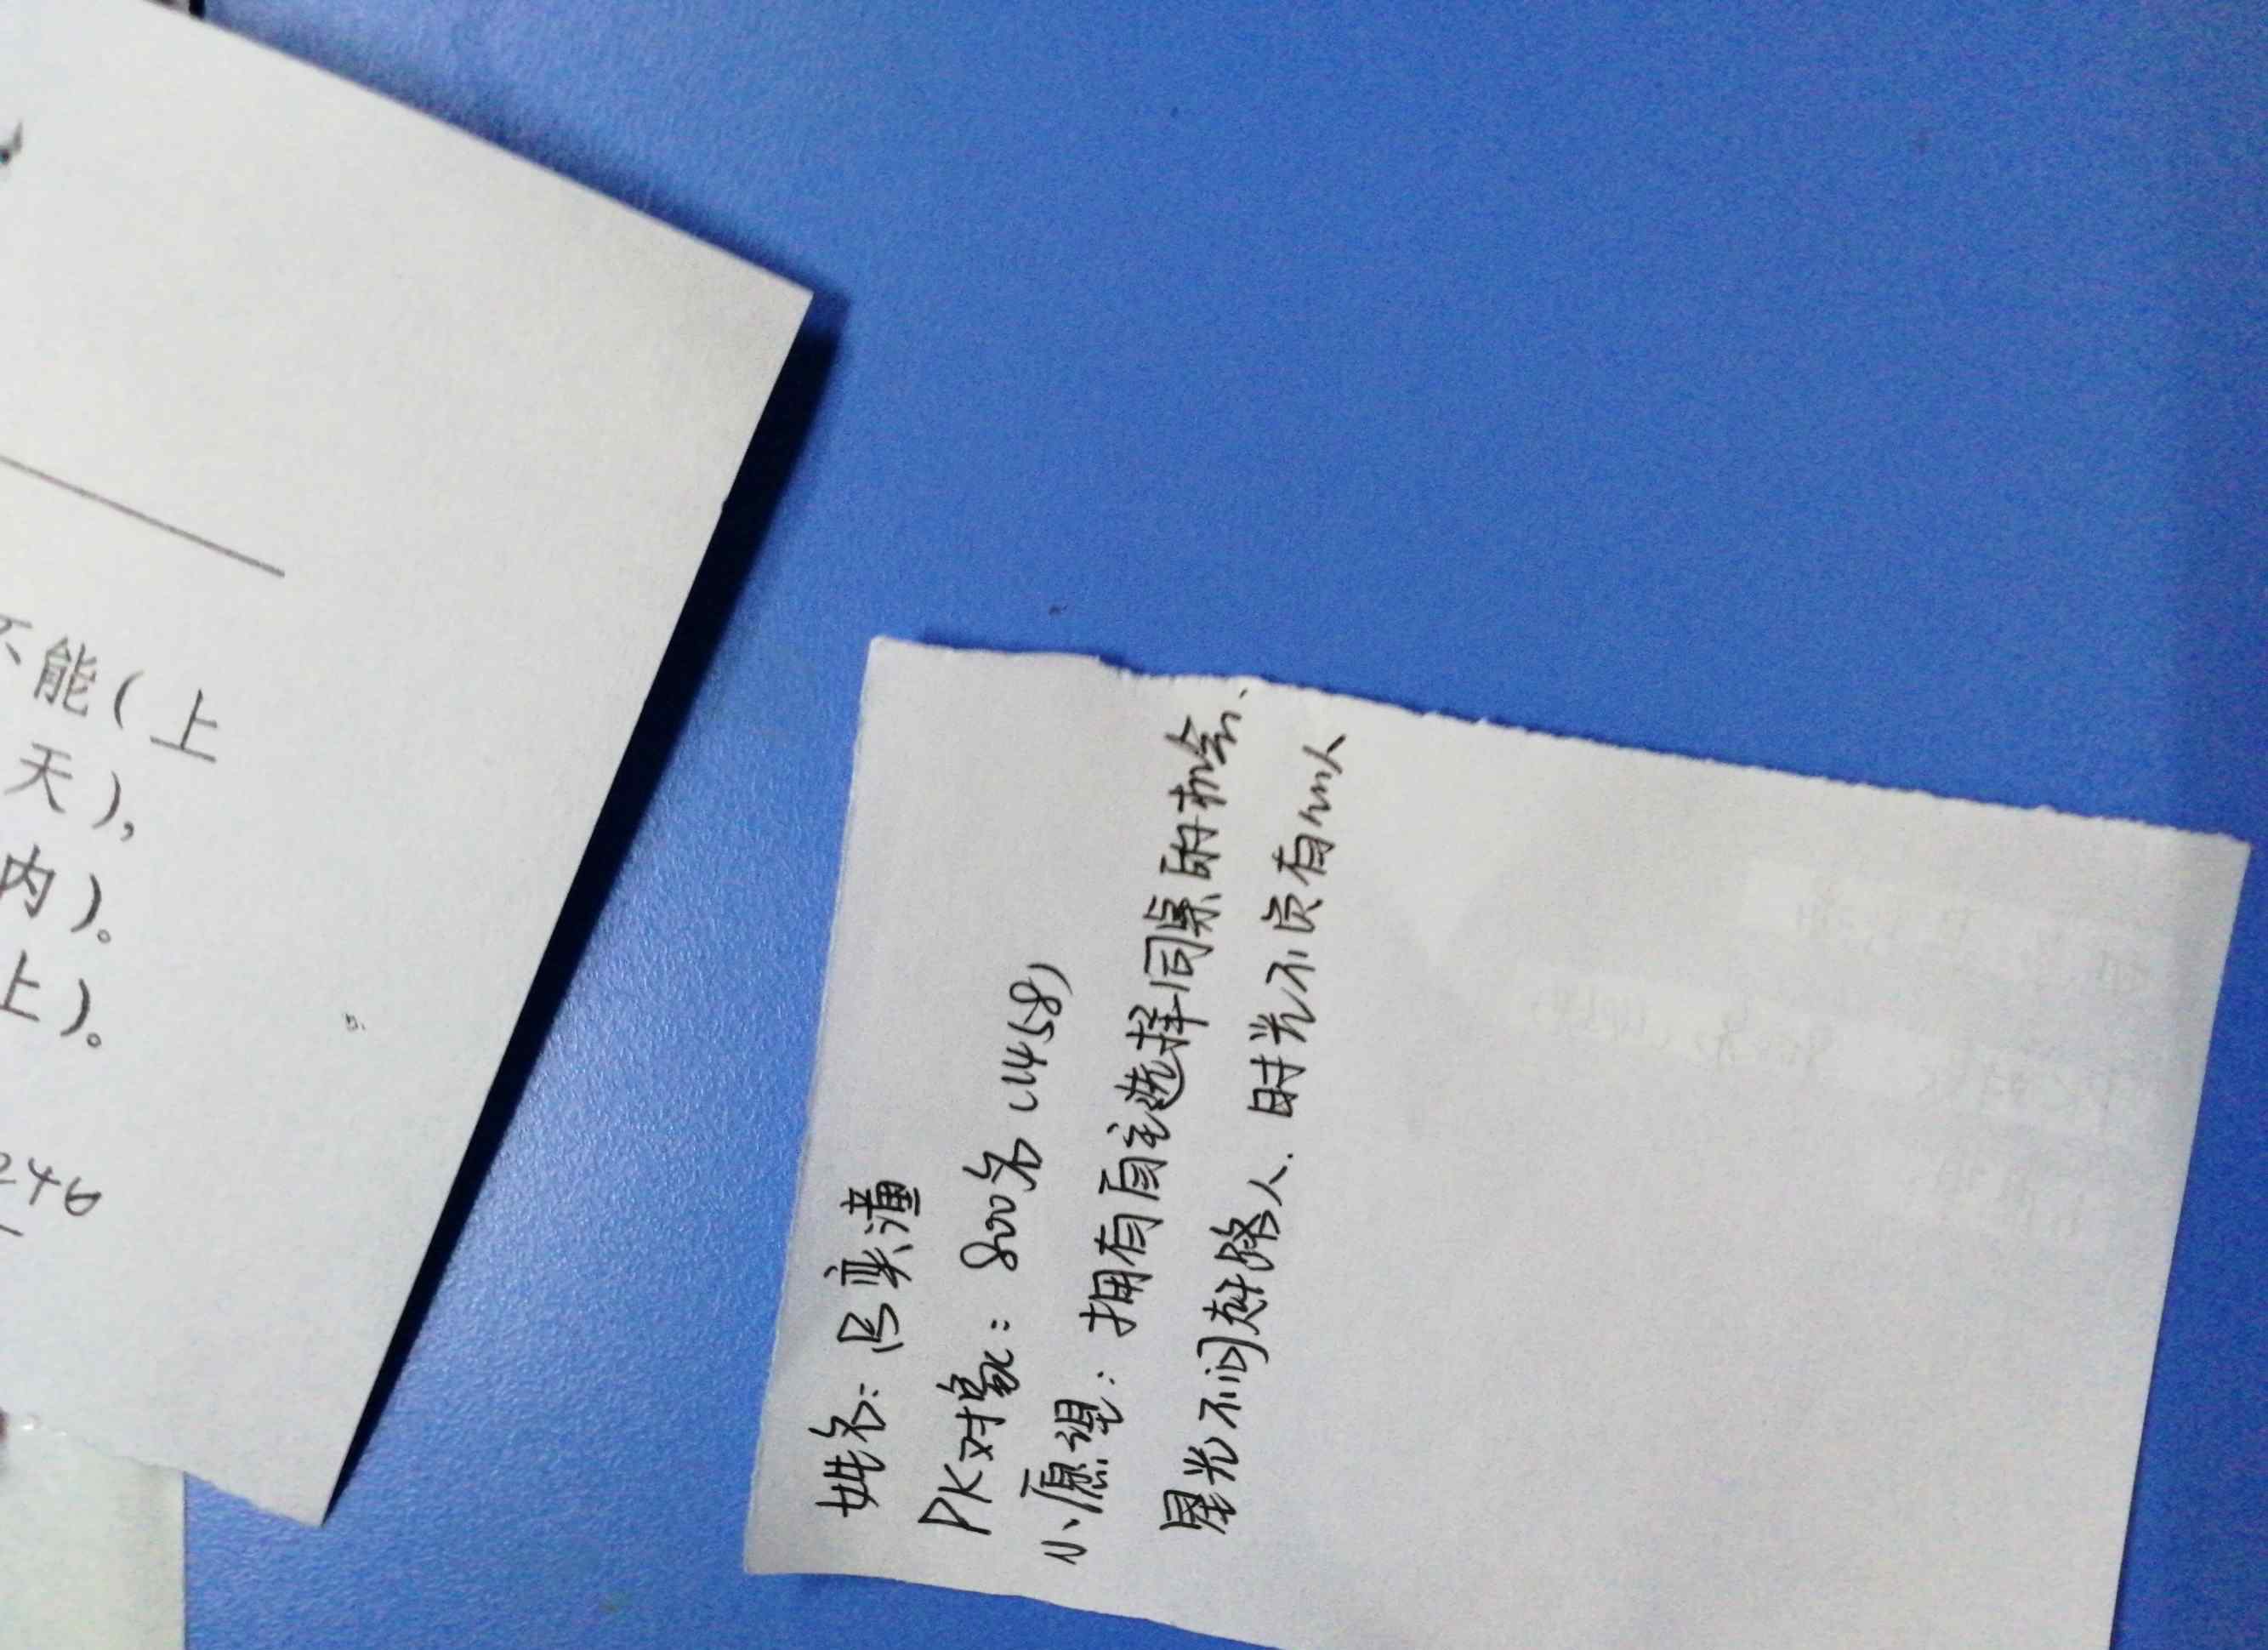 不能(上
天),
内)。
上)。
246
姓名:吕奕潼
PK对象:800名(1458)
小愿望:拥有自主选择同桌的机会.
星光不问赶路人.时光不负有心人